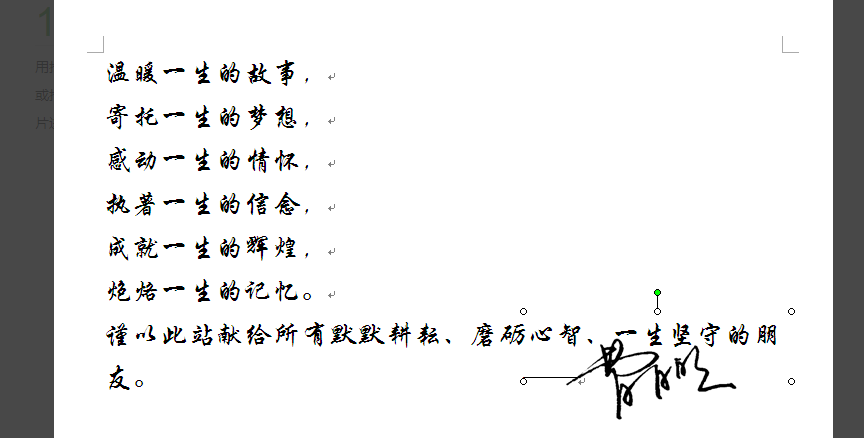 温暖一生的故事，
寄托一生的梦想，
感动一生的情怀，
执著一生的信念，
成就一生的辉煌，
炮烙一生的记忆。
谨以此站献给所有默默耕耘、磨砺心智、一生坚守的朋
友。